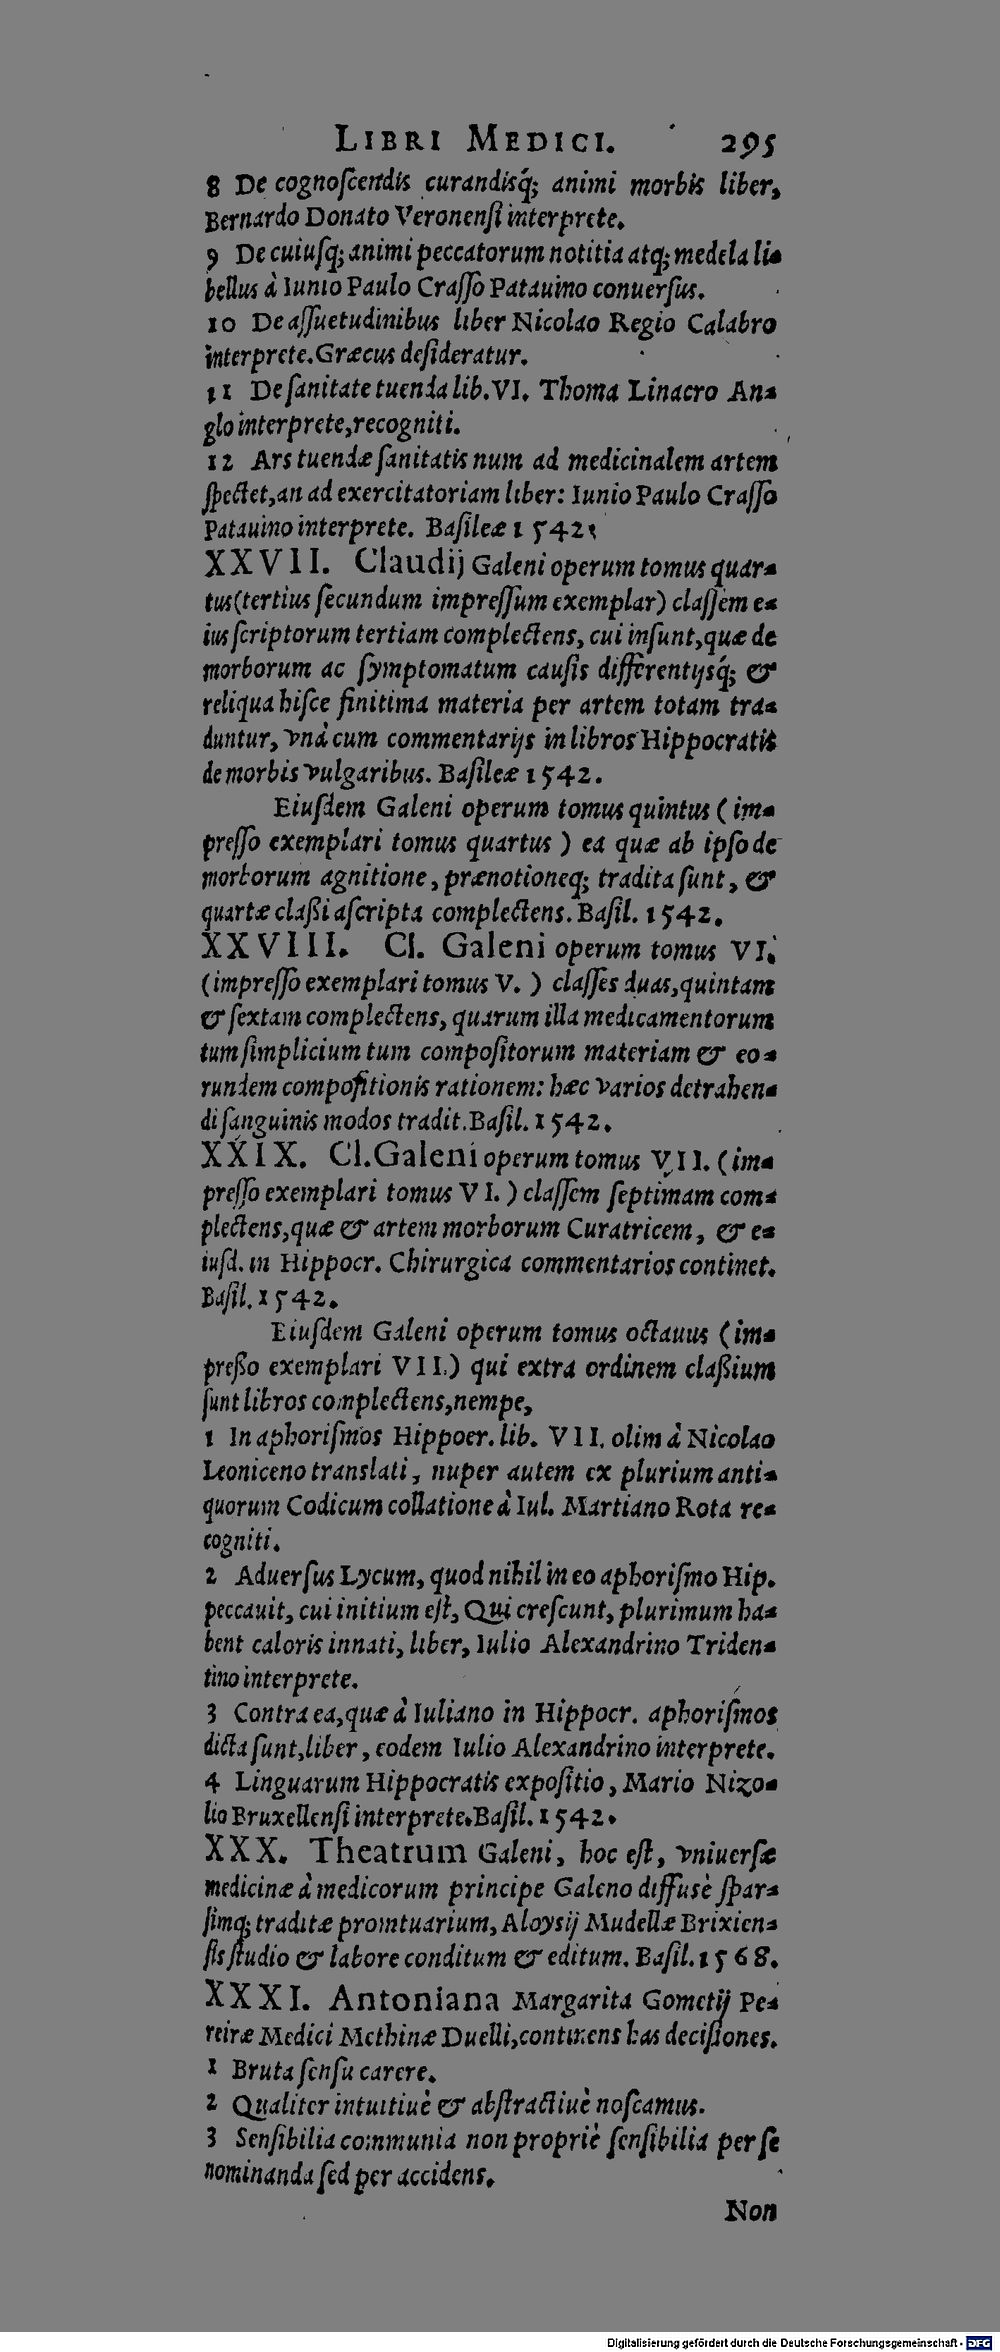 LIBRI MEDICI. 295
8 De cognoſcendis curandisq́; animi morbis liber,
Bernardo Donato Veronenſi interprete.
9 De cuiuſq; animi peccatorum notitia atq; medela li-
bellus à Iunio Paulo Craſſo Patauino conuerſus.
10 De aſſuetudinibus liber Nicolao Regio Calabro
interprete. Græcus deſideratur.
11 De ſanitate tuenda lib. VI. Thoma Linacro An-
glo interprete, recogniti.
12 Ars tuendæ ſanitatis num ad medicinalem artem
ſpectet, an ad exercitatoriam liber: Iunio Paulo Craſſo
Patauino interprete. Baſileæ 1542.
XXVII. Claudij Galeni operum tomus quar-
tus (tertius ſecundum impreſſum exemplar) claſſem e-
ius ſcriptorum tertiam complectens, cui inſunt, quæ de
morborum ac ſymptomatum cauſis differentijsq́; &
reliqua hiſce finitima materia per artem totam tra-
duntur, vnà cum commentarijs in libros Hippocratis
de morbis vulgaribus. Baſileæ 1542.
Eiuſdem Galeni operum tomus quintus (im-
preſſo exemplari tomus quartus) ea quæ ab ipſo de
morborum agnitione, prænotioneq; tradita ſunt, &
quartæ claßi aſcripta complectens. Baſil. 1542.
XXVIII. Cl. Galeni operum tomus VI.
(impreſſo exemplari tomus V.) claſſes duas, quintam
& ſextam complectens, quarum illa medicamentorum
tum ſimplicium tum compoſitorum materiam & eo-
rundem compoſitionis rationem: hæc varios detrahen-
di ſanguinis modos tradit. Baſil. 1542.
XXIX. Cl. Galeni operum tomus VII. (im-
preſſo exemplari tomus VI.) claſſem ſeptimam com-
plectens, quæ & artem morborum Curatricem, & e-
iuſd. in Hippocr. Chirurgica commentarios continet.
Baſil. 1542.
Eiuſdem Galeni operum tomus octauus (im-
preßo exemplari VII.) qui extra ordinem claßium
ſunt libros complectens, nempe,
1 In aphoriſmos Hippocr. lib. VII. olim à Nicolao
Leoniceno translati, nuper autem ex plurium anti-
quorum Codicum collatione à Iul. Martiano Rota re-
cogniti.
2 Aduerſus Lycum, quod nihil in eo aphoriſmo Hip.
peccauit, cui initium eſt, Qui creſcunt, plurimum ha-
bent caloris innati, liber, Iulio Alexandrino Triden-
tino interprete.
3 Contra ea, quæ à Iuliano in Hippocr. aphoriſmos
dicta ſunt, liber, eodem Iulio Alexandrino interprete.
4 Linguarum Hippocratis expoſitio, Mario Nizo-
lio Bruxellenſi interprete. Baſil. 1542.
XXX. Theatrum Galeni, hoc eſt, vniuerſæ
medicinæ à medicorum principe Galeno diffusè ſpar-
ſimq; traditæ promtuarium, Aloysij Mudellæ Brixien-
ſis ſtudio & labore conditum & editum. Baſil. 1568.
XXXI. Antoniana Margarita Gometij Pe-
reiræ Medici Methinæ Duelli, continens has deciſiones.
1 Bruta ſenſu carere.
2 Qualiter intuitiuè & abſtractiuè noſcamus.
3 Senſibilia communia non propriè ſenſibilia per ſe
nominanda ſed per accidens.
Non
Digitalisierung gefördert durch die Deutsche Forschungsgemeinschaft - DFG